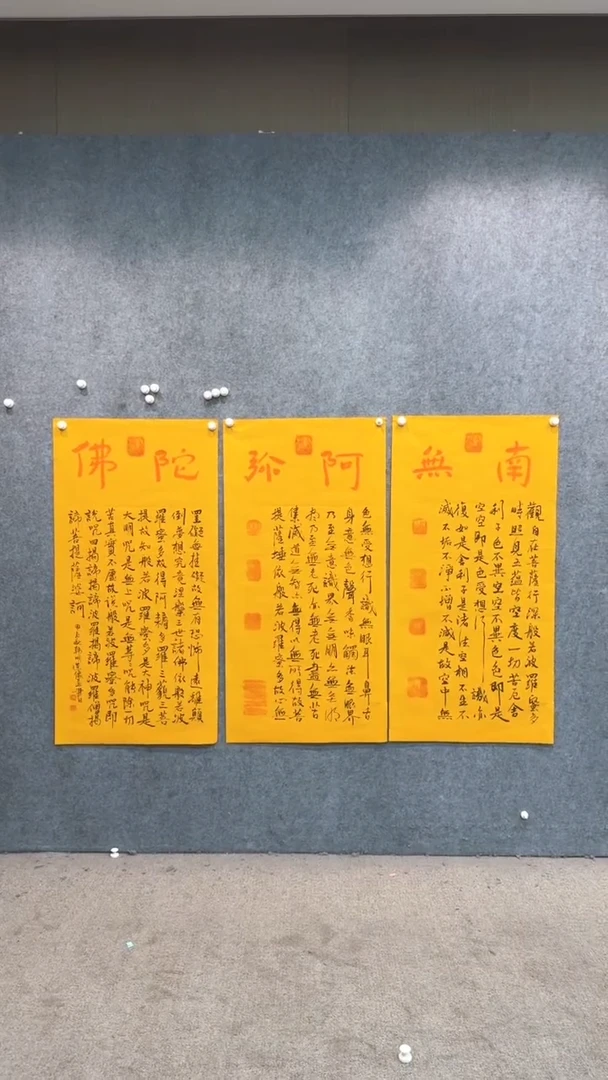 南無
觀自在菩薩行深般若波羅蜜多
時照見五蘊皆空度一切苦厄舍
利子色不異空空不異色色即是
空空即是色受想行識亦
復如是舍利子是諸法空相不生不
滅不垢不淨不增不減是故空中無
阿弥
色無受想行識無眼耳鼻舌
身意無色聲香味觸法無眼界
乃至無意識界無無明亦無無明
盡乃至無老死亦無老死盡無苦
集滅道無智亦無得以無所得故菩
提薩埵依般若波羅蜜多故心無
陀佛
罣礙無罣礙故無有恐怖遠離顛
倒夢想究竟涅槃三世諸佛依般若波
羅蜜多故得阿耨多羅三藐三菩
提故知般若波羅蜜多是大神咒是
大明咒是無上咒是無等等咒能除一切
苦真實不虛故說般若波羅蜜多咒即
說咒曰揭諦揭諦波羅揭諦波羅僧揭
諦菩提薩婆訶